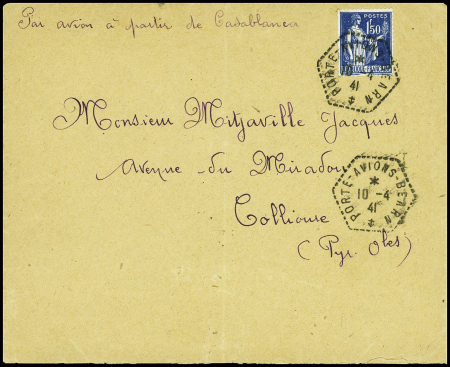 Par avion à partir de Casablanca
POSTES
1f50
Monsieur Mitjaville Jacques
Avenue du Mirador
Collioure
(Pyr. Oles)
PORTE-AVIONS-BEARN
10 -4
41